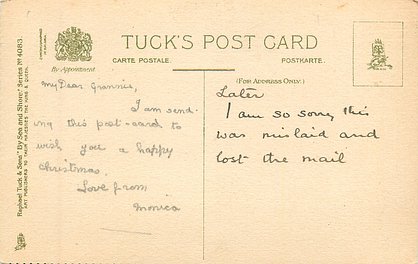 TUCK'S POST CARD
CARTE POSTALE.
POSTKARTE.
By Appointment
(FOR ADDRESS ONLY.)
Raphael Tuck & Sons' "By Sea and Shore" Series Nº 4083.
ART PUBLISHERS TO THEIR MAJESTIES THE KING & QUEEN.
My Dear Grannie,
I am send-
ing this post-card to
wish you a happy
christmas.
Love from
monica
Later
I am so sorry this
was mislaid and
lost the mail